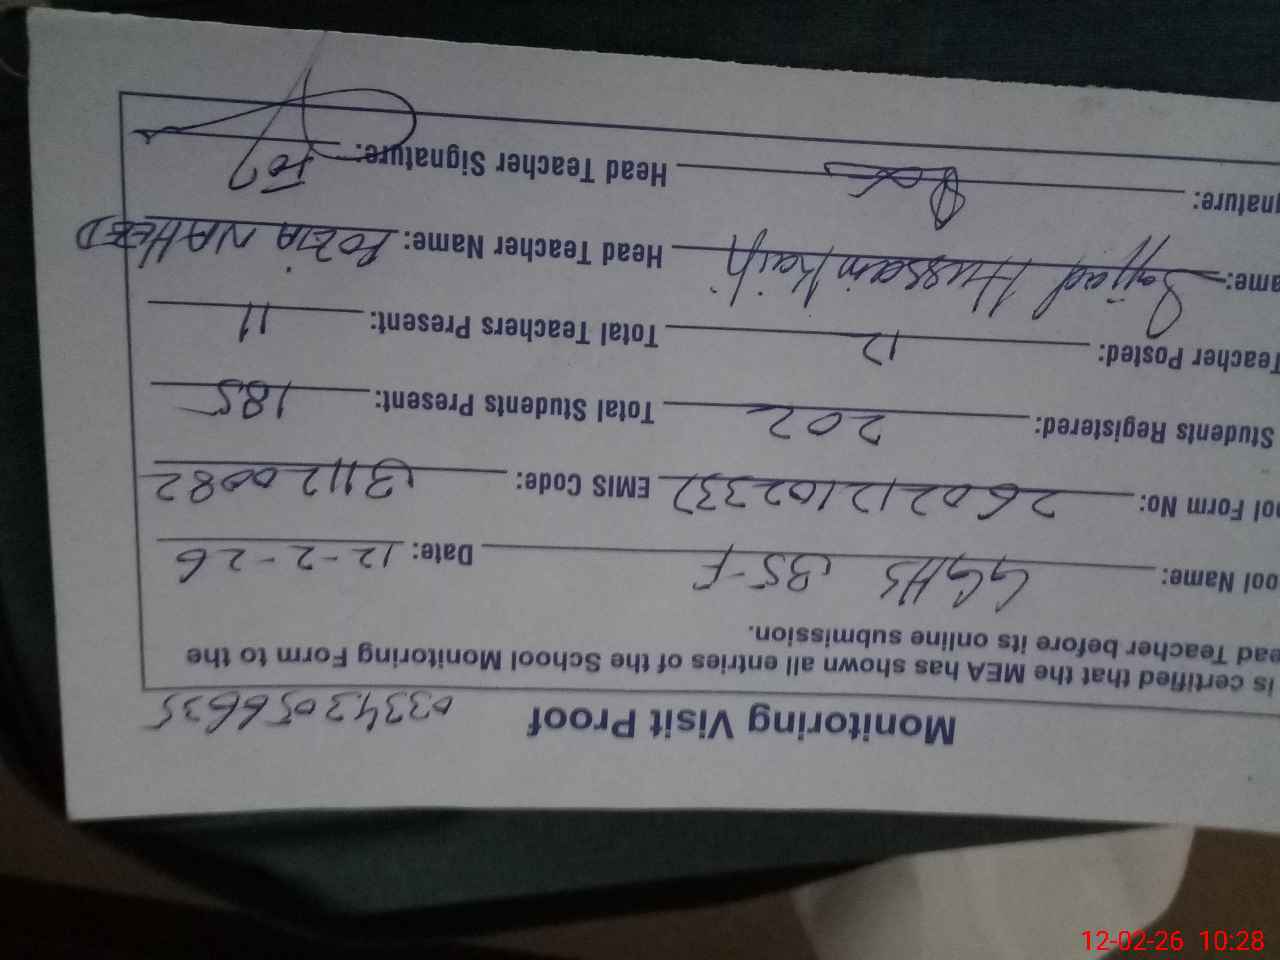 Monitoring Visit Proof 03343056635
is certified that the MEA has shown all entries of the School Monitoring Form to the
ead Teacher before its online submission.
ool Name: GGHS 35-F Date: 12-2-26
ool Form No: 260212102337 EMIS Code: 31120082
Students Registered: 202 Total Students Present: 185
Teacher Posted: 12 Total Teachers Present: 11
ame: Sajjad Hussain Head Teacher Name: FOZIA NAHEED
gnature: Head Teacher Signature:
12-02-26 10:28